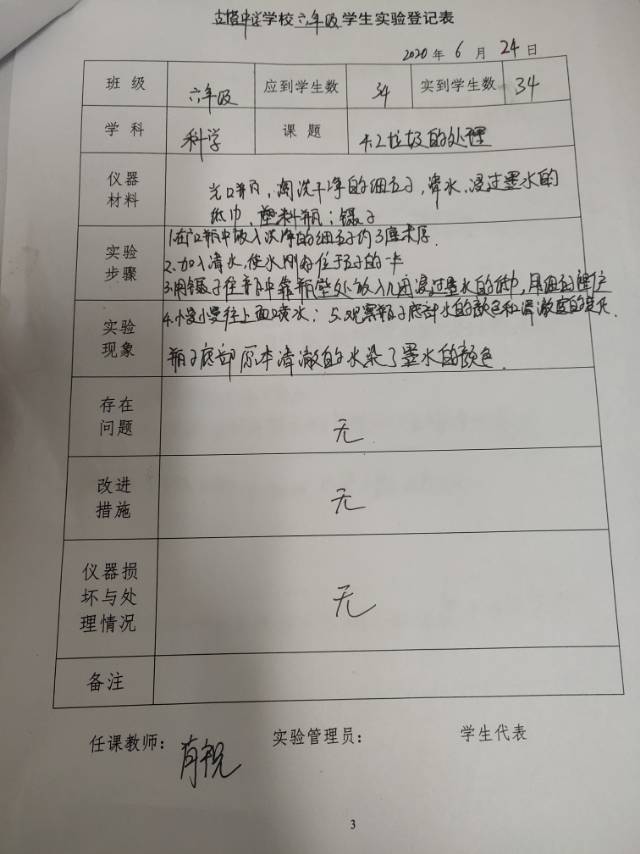 学校六年级学生实验登记表
2020年6月24日
班级 六年级 应到学生数 34 实到学生数 34
学科 科学 课题 4.2垃圾的处理
仪器材料 广口瓶, 淘洗干净的细石子, 清水, 浸过墨水的
纸巾, 塑料瓶; 镊子
实验步骤 1.在广口瓶中放入洗净的细石子约3厘米厚.
2.加入清水, 使水刚好位于石子的一半
3.用镊子在石子中靠瓶壁处放入几团浸过墨水的纸巾, 用细石子掩住
4.慢慢往上面喷水; 5.观察瓶子底部水的颜色和清澈度的变化.
实验现象 瓶子底部原本清澈的水染了墨水的颜色.
存在问题 无
改进措施 无
仪器损坏与处理情况 无
备注
任课教师: 实验管理员: 学生代表
3